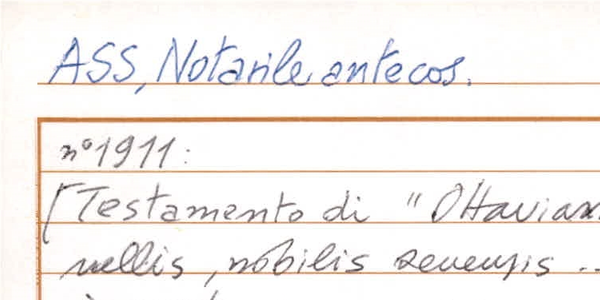 ASS, Notarile antecos.
n° 1911:
[Testamento di "Ottavian
nellis, nobilis senensis ..